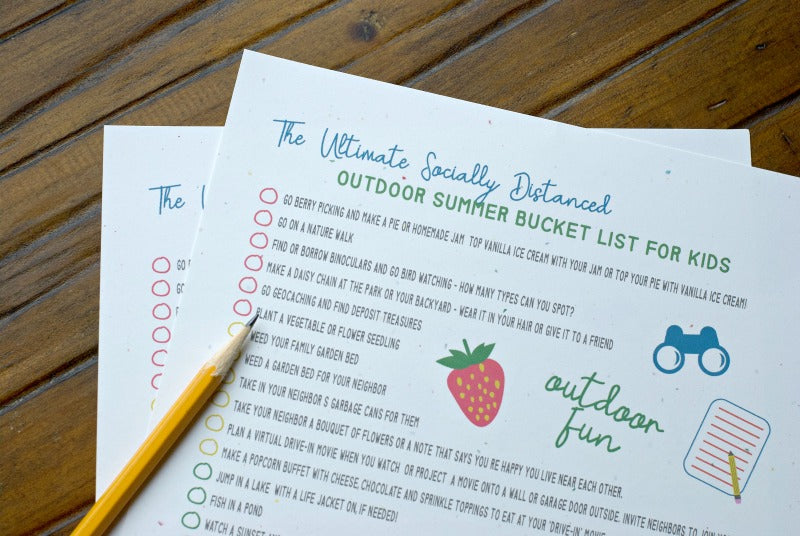 The Ultimate Socially Distanced
OUTDOOR SUMMER BUCKET LIST FOR KIDS
GO BERRY PICKING AND MAKE A PIE OR HOMEMADE JAM TOP VANILLA ICE CREAM WITH YOUR JAM OR TOP YOUR PIE WITH VANILLA ICE CREAM!
GO ON A NATURE WALK
FIND OR BORROW BINOCULARS AND GO BIRD WATCHING - HOW MANY TYPES CAN YOU SPOT?
MAKE A DAISY CHAIN AT THE PARK OR YOUR BACKYARD - WEAR IT IN YOUR HAIR OR GIVE IT TO A FRIEND
GO GEOCACHING AND FIND DEPOSIT TREASURES
PLANT A VEGETABLE OR FLOWER SEEDLING
WEED YOUR FAMILY GARDEN BED
WEED A GARDEN BED FOR YOUR NEIGHBOR
TAKE IN YOUR NEIGHBOR S GARBAGE CANS FOR THEM
TAKE YOUR NEIGHBOR A BOUQUET OF FLOWERS OR A NOTE THAT SAYS YOU'RE HAPPY YOU LIVE NEAR EACH OTHER.
PLAN A VIRTUAL DRIVE-IN MOVIE WHEN YOU WATCH OR PROJECT A MOVIE ONTO A WALL OR GARAGE DOOR OUTSIDE. INVITE NEIGHBORS TO JOIN
MAKE A POPCORN BUFFET WITH CHEESE, CHOCOLATE AND SPRINKLE TOPPINGS TO EAT AT YOUR 'DRIVE-IN' MOVIE
JUMP IN A LAKE WITH A LIFE JACKET ON, IF NEEDED!
FISH IN A POND
WATCH A SUNSET
outdoor
fun
The
GO